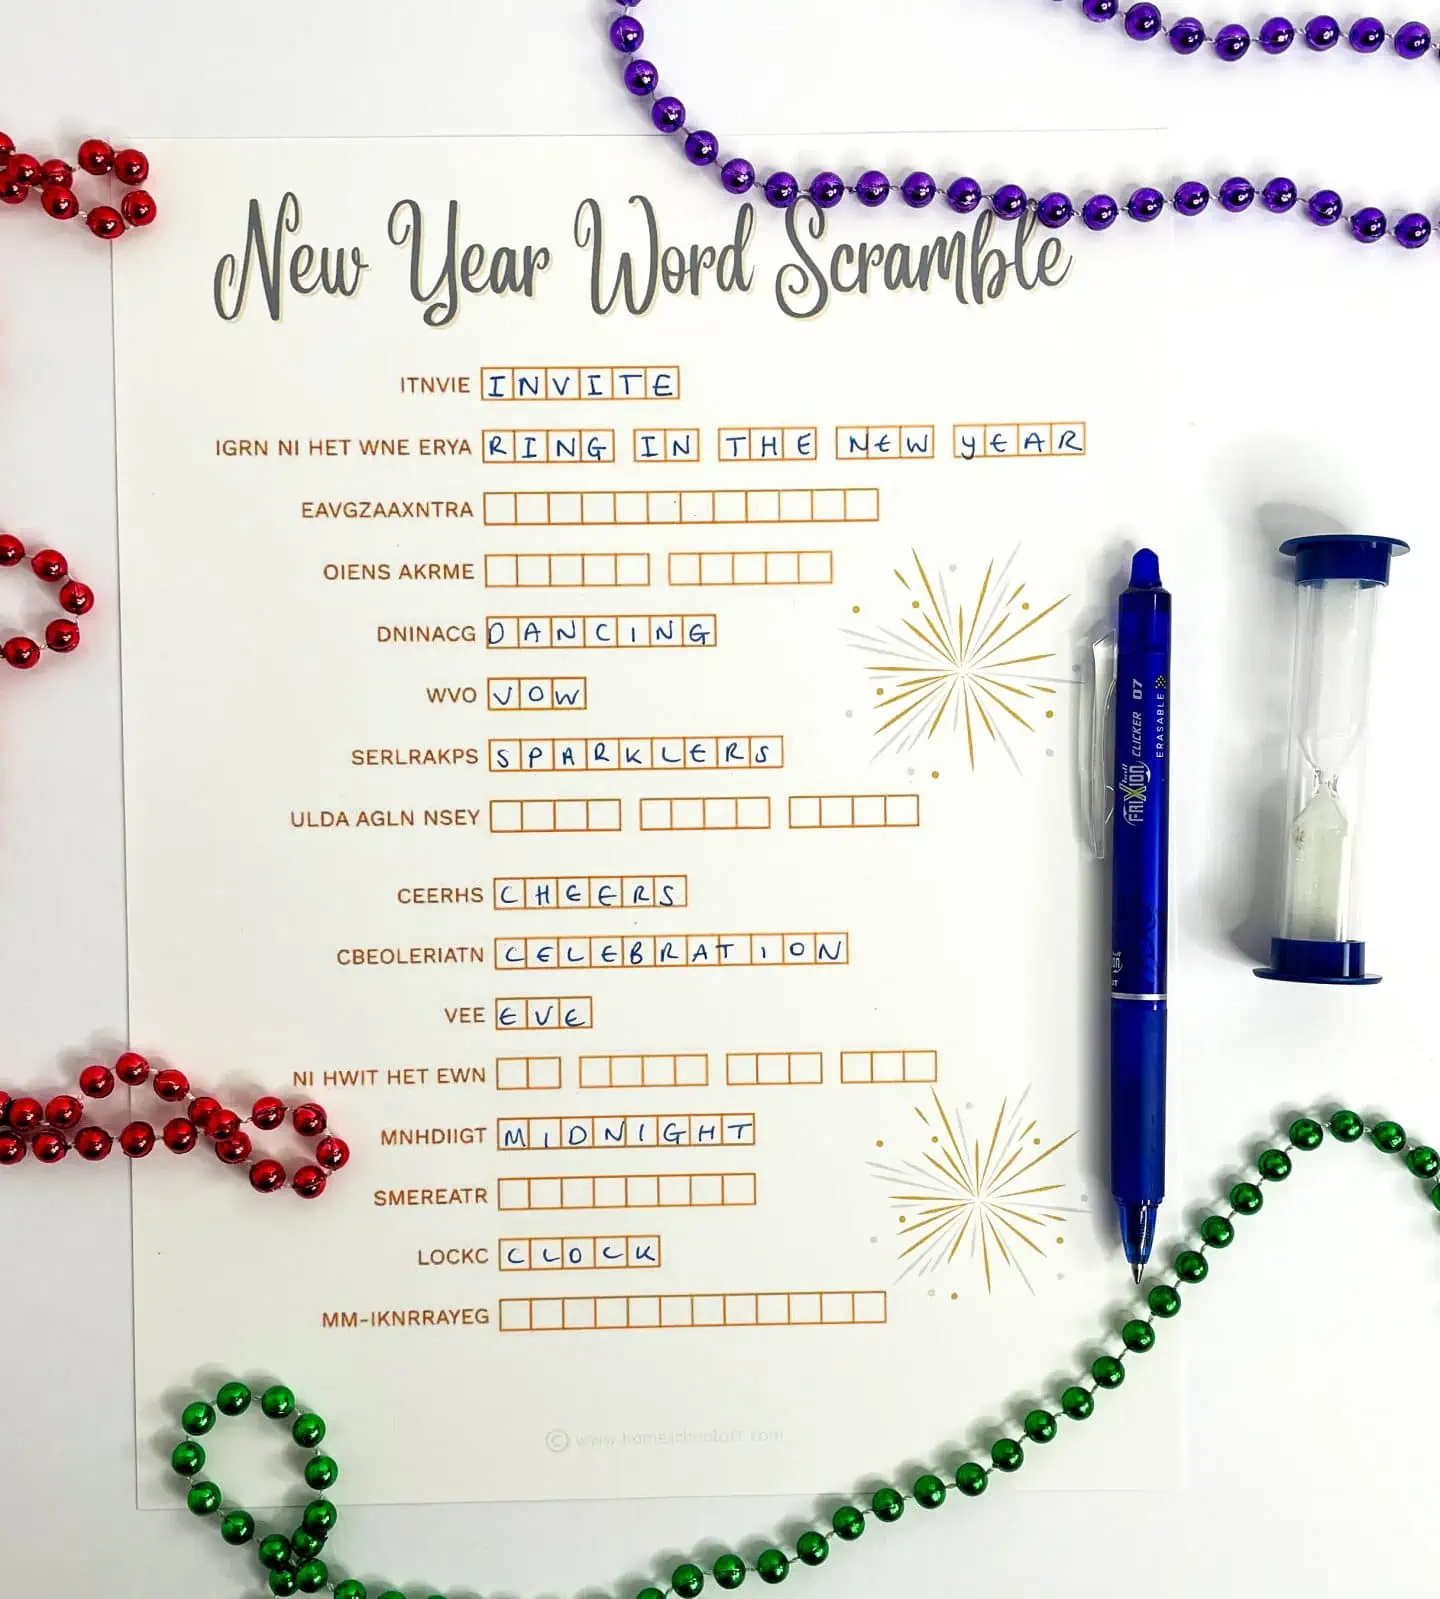 New Year Word Scramble
ITNVIE INVITE
IGRN NI HET WNE ERYA RING IN THE NEW YEAR
EAVGZAAXNTRA
OIENS AKRME
DNINACG DANCING
WVO VOW
SERLRAKPS SPARKLERS
ULDA AGLN NSEY
CEERHS CHEERS
CBEOLERIATN CELEBRATION
VEE EVE
NI HWIT HET EWN
MNHDIIGT MIDNIGHT
SMEREATR
LOCKC CLOCK
MM-IKNRRAYEG
FRIXION CLICKER 07
ERASABLE